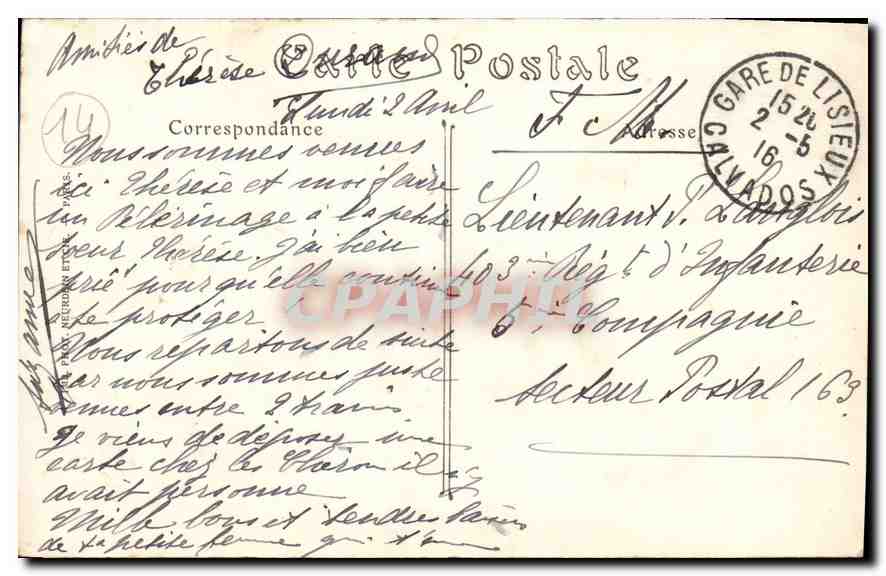 Amitiés de
Thérèse
Carte Postale
Lundi 2 Avril
14
Correspondance
Nous sommes venues
ici Thérèse et moi faire
un Pélérinage à la petite
soeur Thérèse. J'ai bien
prié pour qu'elle continue
te protéger
Nous repartons de suite
car nous sommes juste
venues entre 2 trains
Je viens de déposer une
carte chez les il n'y
avait personne
Mille bons et tendres baisers
de ta petite femme qui t'aime
Suzanne
PHOT. NEURDEIN ET CIE. - PARIS.
F M
Adresse
GARE DE LISIEUX
15 20
2 -5
16
CALVADOS
Lieutenant P. Langlois
403 ème Régt d'Infanterie
6 è Compagnie
Secteur Postal 163
CPAPHIL